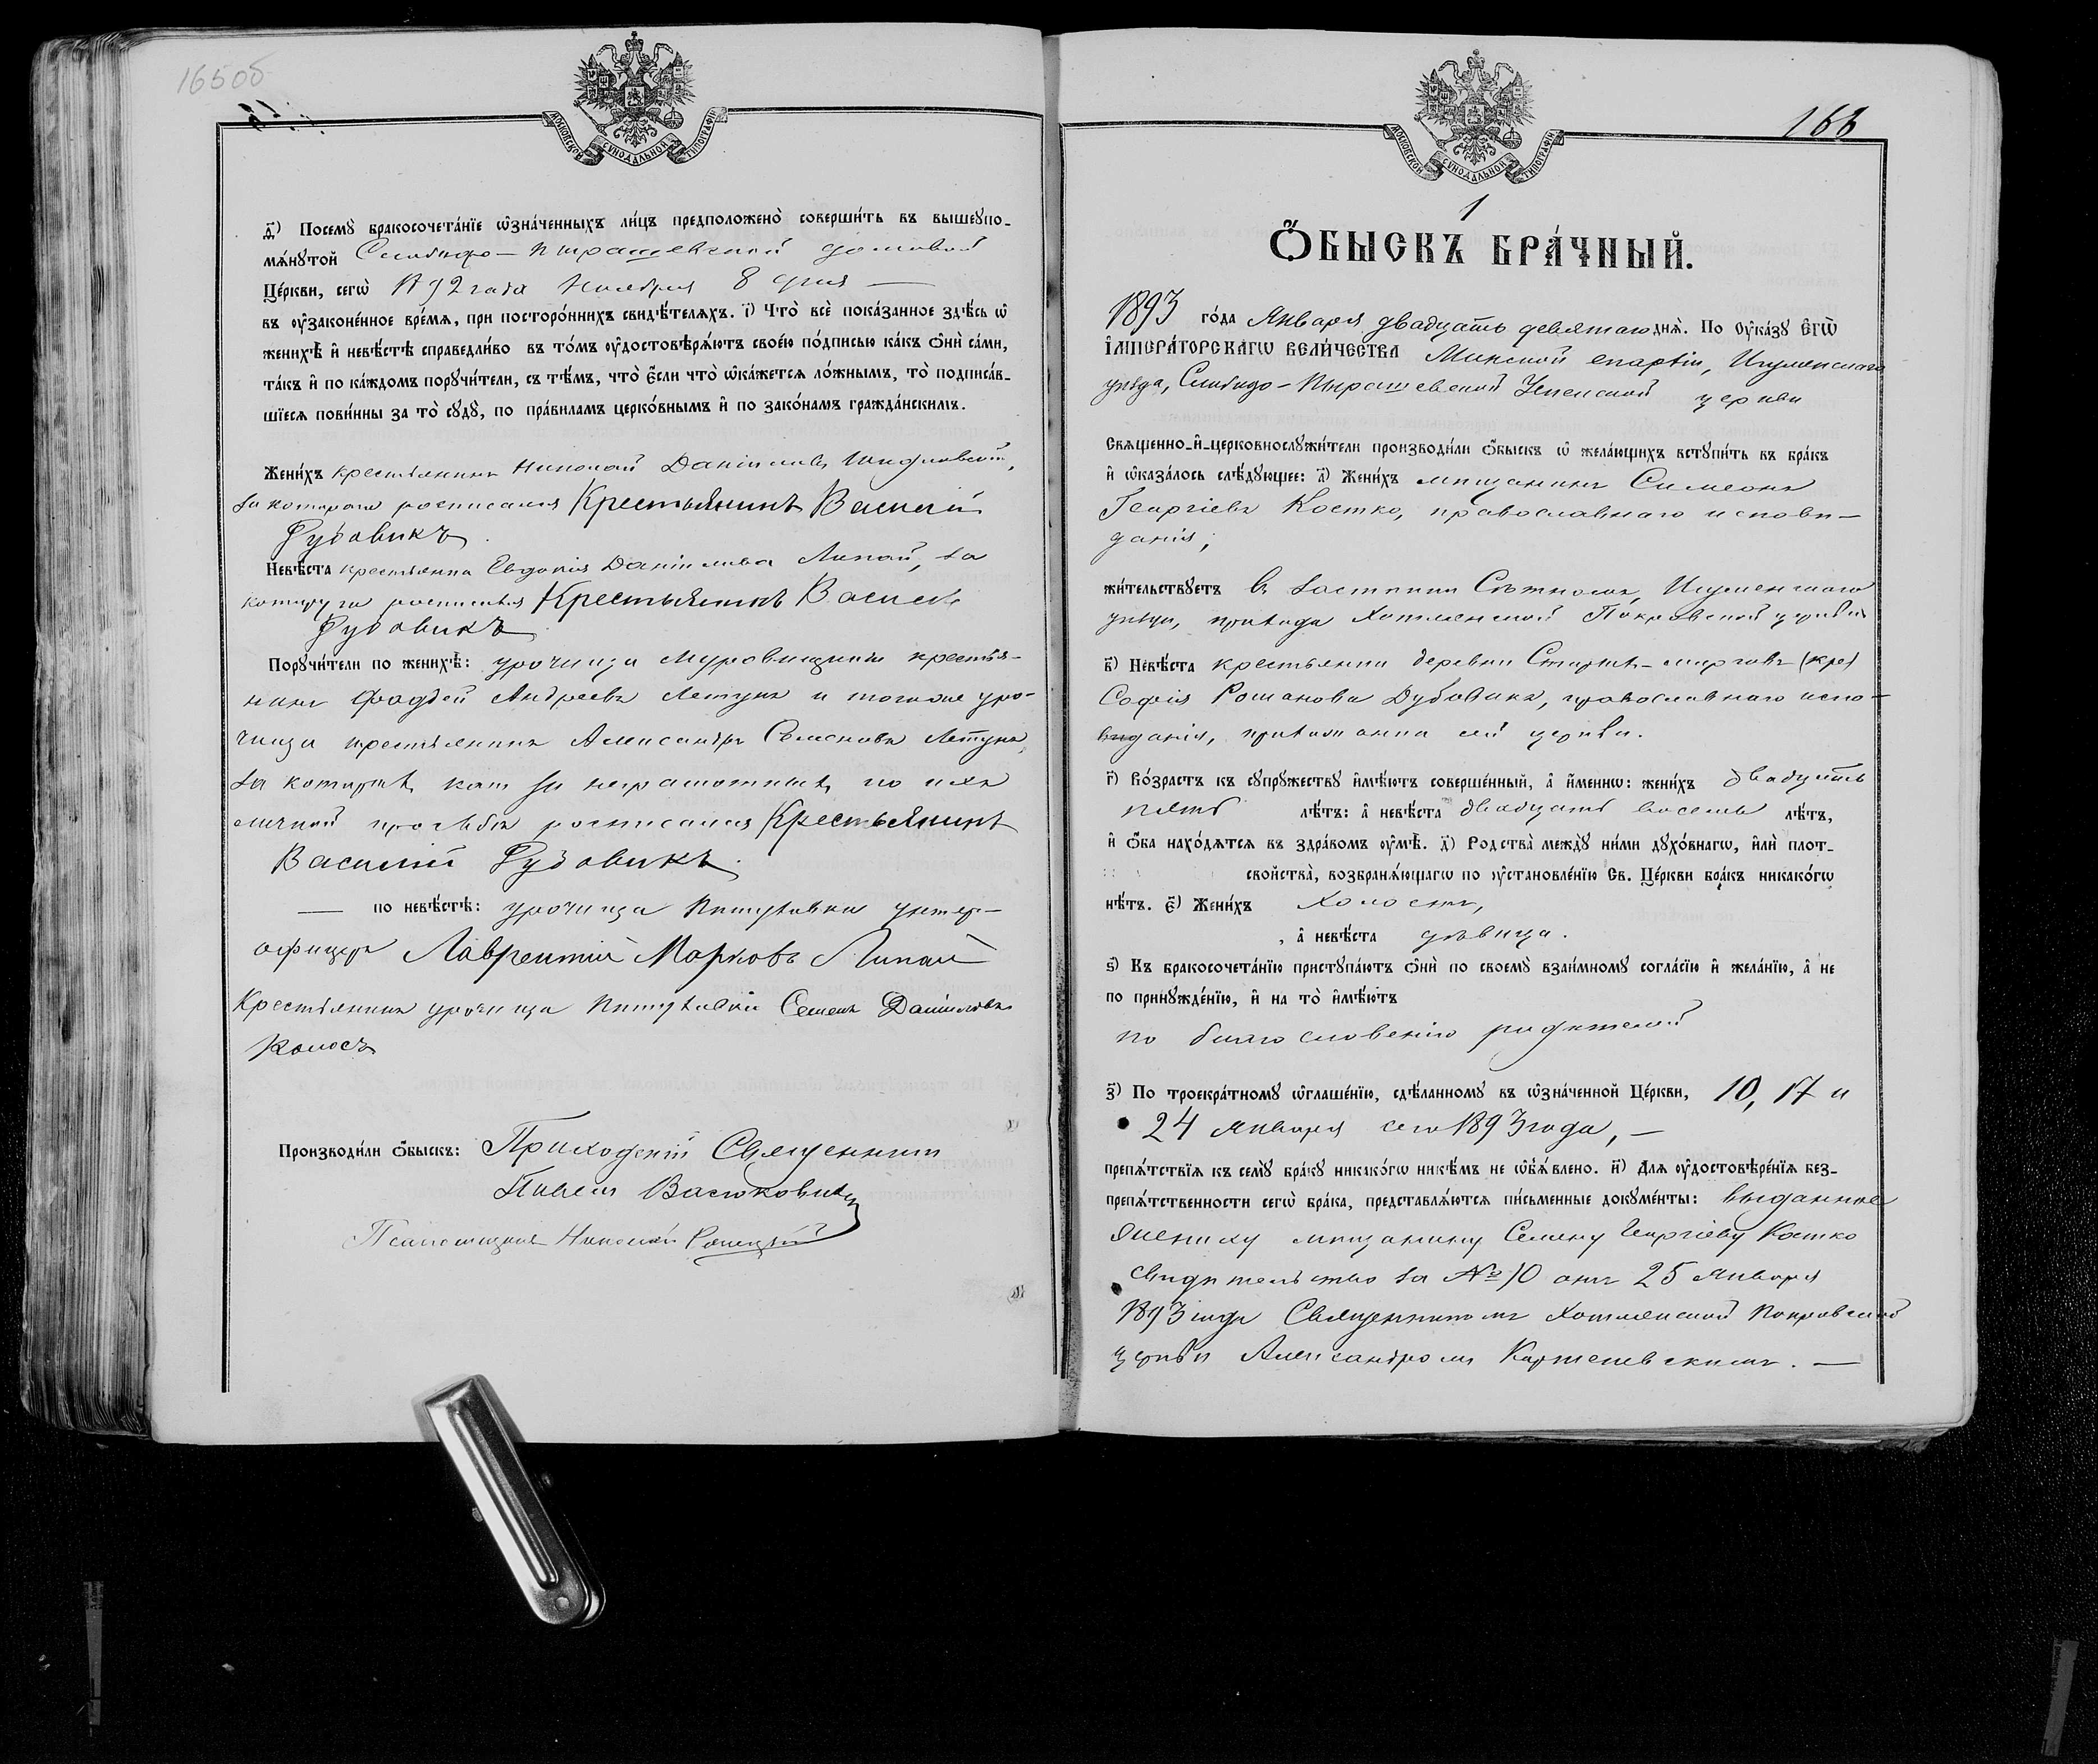 165об
МОСКОВСКОЙ СѴНОДАЛЬНОЙ ТИПОГРАФІИ
д҃) Посемꙋ̀ бракосочета́нїе ѡ҆зна́ченныхъ ли́цъ предположено̀ соверши́ть въ вышеꙋпо-
мѧ́нꙋтой Слободо-Пырашевской домовой
Це́ркви, сегѡ̀ 1892 года Ноября 8 дня —
въ оу҆законе́нное вре́мѧ, при посторо́ннихъ свидѣ́телѧхъ. і҃) Что̀ всѐ пока́занное здѣ́сь ѡ҆
женихѣ̀ и҆ невѣ́стѣ справедли́во въ то́мъ оу҆достовѣрѧ́ютъ свое́ю по́дписью ка́къ ѻ҆нѝ са́ми,
та́къ и҆ по ка́ждомъ порꙋчи́тели, съ тѣ́мъ, что̀ є҆́сли что̀ ѡ҆ка́жетсѧ ло́жнымъ, то̀ подписа́в-
шїесѧ пови́нны за то̀ сꙋдꙋ̀, по пра́виламъ церко́внымъ и҆ по зако́намъ гражда́нскимъ.
Жени́хъ крестьянинъ Николай Даніиловъ Шидловскій,
за котораго росписался Крестьянинъ Василій
Дубовикъ
Невѣ́ста крестьянка Евдокія Даніилова Липай, за
которую росписался Крестьянинъ Василій
Дубовикъ
Порꙋчи́тели по женихѣ̀: урочища крестья-
нинъ Фаддей Андреевъ Летунъ и тогоже уро-
чища крестьянинъ Александръ Летунъ,
за которыхъ, какъ за неграмотныхъ, по ихъ
личной просьбѣ росписался Крестьянинъ
Василій Дубовикъ
— по невѣ́стѣ: урочища унтер-
офицеръ Лаврентій Марковъ Липай
Крестьянинъ урочища Семенъ Даніиловъ
Колосъ
Произво́дили ѻ҆́быскъ: Приходскій Священникъ
Павелъ Васюковичъ
Псаломщикъ Николай
166
МОСКОВСКОЙ СѴНОДАЛЬНОЙ ТИПОГРАФІИ
1
Ѻ҆́БЫСКЪ БРА́ЧНЫЙ.
1893 го́да Января двадцать девятаго днѧ̀. По оу҆ка́зꙋ Є҆гѡ̀
І҆МПЕРА́ТОРСКАГѠ ВЕЛИ́ЧЕСТВА Минской епархіи, Игуменскаго
уѣзда, Слободо-Пырашевской Успенской церкви
Свѧщенно-и҆-церковнослꙋжи́тели производи́ли ѻ҆́быскъ ѡ҆ жела́ющихъ встꙋпи́ть въ бра́къ
и҆ ѡ҆каза́лось слѣ́дꙋющее: а҃) Жени́хъ мѣщанинъ Симеонъ
Георгіевъ Костко, православнаго исповѣ-
данія;
жи́тельствꙋетъ въ застѣнкѣ Игуменскаго
уѣзда, прихода Хотлянской Покровской церкви
в҃) Невѣ́ста крестьянка деревни
Софія Романова Дубовикъ, православнаго испо-
вѣданія, прихожанка сей церкви.
г҃) Во́зрастъ къ сꙋпрꙋ́жествꙋ и҆мѣ́ютъ соверше́нный, а҆ и҆́менно: жени́хъ двадцать
пять лѣ́тъ: а҆ невѣ́ста двадцать восемь лѣ́тъ,
и҆ ѻ҆́ба нахо́дѧтсѧ въ здра́вомъ оу҆мѣ̀. д҃) Родства̀ междꙋ̀ ни́ми дꙋхо́внагѡ, и҆лѝ плот-
свойства̀, возбранѧ́ющагѡ по оу҆становле́нїю Св. Це́ркви бра́къ никако́гѡ
нѣ́тъ. є҃) Жени́хъ холостъ,
, а҆ невѣ́ста дѣвица.
ѕ҃) Къ бракосочета́нїю пристꙋпа́ютъ ѻ҆нѝ по своемꙋ̀ взаи́мномꙋ согла́сїю и҆ жела́нїю, а҆ не
по принꙋжде́нїю, и҆ на то̀ и҆мѣ́ютъ
по благословенію родителей
з҃) По троекра́тномꙋ ѡ҆глаше́нїю, сдѣ́ланномꙋ въ ѡ҆зна́ченной Це́ркви, 10, 17 и
24 Января сего 1893 года, —
препѧ́тствїѧ къ семꙋ̀ бра́кꙋ никако́гѡ никѣ́мъ не ѡ҆бъѧ́влено. и҃) Длѧ оу҆достовѣре́нїѧ без-
препѧ́тственности сегѡ̀ бра́ка, представлѧ́ютсѧ пи́сьменные докꙋме́нты: выданное
жениху мѣщанину Семену Георгіеву Костко
свидѣтельство за № 10 отъ 25 Января
1893 года Священникомъ Хотлянской Покровской
церкви Александромъ.